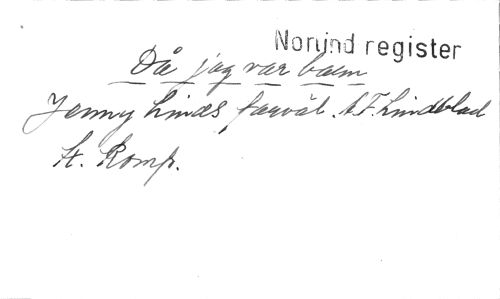 Norlind register
Då jag var barn
Jenny Linds farväl. A.F. Lindblad
St. Komp.